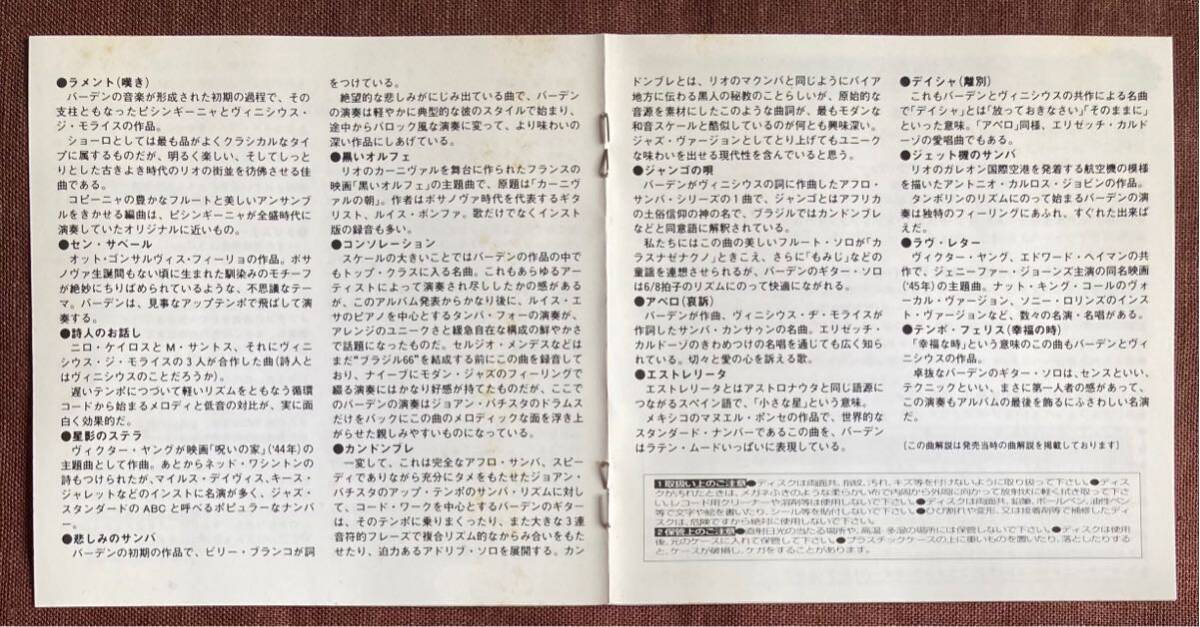 ●ラメント(嘆き)
バーデンの音楽が形成された初期の過程で、その
支柱ともなったピシンギーニャとヴィニシウス・
ジ・モライスの作品。
ショーロとしては最も品がよくクラシカルなタイ
プに属するものだが、明るく楽しい、そしてしっと
りとした古きよき時代のリオの街並を彷佛させる佳
曲である。
コピーニャの豊かなフルートと美しいアンサンブ
ルをきかせる編曲は、ピシンギーニャが全盛時代に
演奏していたオリジナルに近いもの。
●セン・サペール
オット・ゴンサルヴィス・フィーリョの作品。ボサ
ノヴァ生誕間もない頃に生まれた馴染みのモチーフ
が絶妙にちりばめられているような、不思議なテー
マ。バーデンは、見事なアップテンポで飛ばして演
奏する。
●詩人のお話し
ニロ・ケイロスとM・サントス、それにヴィニ
シウス・ジ・モライスの3人が合作した曲(詩人と
はヴィニシウスのことだろうか)。
遅いテンポにつづいて軽いリズムをともなう循環
コードから始まるメロディと低音の対比が、実に面
白く効果的だ。
●星影のステラ
ヴィクター・ヤングが映画「呪いの家」('44年)の
主題曲として作曲。あとからネッド・ワシントンの
詩もつけられたが、マイルス・デイヴィス、キース・
ジャレットなどのインストに名演が多く、ジャズ・
スタンダードのABCと呼べるポピュラーなナンバ
ー。
●悲しみのサンバ
バーデンの初期の作品で、ビリー・ブランコが詞
をつけている。
絶望的な悲しみがにじみ出ている曲で、バーデン
の演奏は軽やかに典型的な彼のスタイルで始まり、
途中からバロック風な演奏に変って、より味わいの
深い作品にしあげている。
●黒いオルフェ
リオのカーニヴァルを舞台に作られたフランスの
映画「黒いオルフェ」の主題曲で、原題は「カーニヴ
ァルの朝」。作者はボサノヴァ時代を代表するギタ
リスト、ルイス・ボンファ。歌だけでなくインスト
版の録音も多い。
●コンソレーション
スケールの大きいことではバーデンの作品の中で
もトップ・クラスに入る名曲。これもあらゆるアー
ティストによって演奏され尽ししたかの感がある
が、このアルバム発表からかなり後に、ルイス・エ
サのピアノを中心とするタンバ・フォーの演奏が、
アレンジのユニークさと緩急自在な構成の鮮やかさ
で話題になったものだ。セルジオ・メンデスなどは
まだ“ブラジル66”を結成する前にこの曲を録音して
おり、ナイーブにモダン・ジャズのフィーリングで
綴る演奏にはかなり好感が持てたものだが、ここで
のバーデンの演奏はジョアン・バチスタのドラムス
だけをバックにこの曲のメロディックな面を浮き上
がらせた親しみやすいものになっている。
●カンドンブレ
一変して、これは完全なアフロ・サンバ、スピー
ディでありながら充分にタメをもたせたジョアン・
バチスタのアップ・テンポのサンバ・リズムに対し
て、コード・ワークを中心とするバーデンのギター
は、そのテンポに乗りまくったり、また大きな3連
音符的フレーズで複合リズム的なからみ合いをもた
せたり、迫力あるアドリブ・ソロを展開する。カン
ドンブレとは、リオのマクンバと同じようにバイア
地方に伝わる黒人の秘教のことらしいが、原始的な
音源を素材にしたこのような曲詞が、最もモダンな
和音スケールと酷似しているのが何とも興味深い。
ジャズ・ヴァージョンとしてとり上げてもユニーク
な味わいを出せる現代性を含んでいると思う。
●ジャンゴの唄
バーデンがヴィニシウスの詞に作曲したアフロ・
サンバ・シリーズの1曲で、ジャンゴとはアフリカ
の土俗信仰の神の名で、ブラジルではカンドンブレ
などと同意語に解釈されている。
私たちにはこの曲の美しいフルート・ソロが「カ
ラスナゼナクノ」ときこえ、さらに「もみじ」などの
童謡を連想させられるが、バーデンのギター・ソロ
は6/8拍子のリズムにのって快適にながれる。
●アペロ(哀訴)
バーデンが作曲、ヴィニシウス・ヂ・モライスが
作詞したサンバ・カンサゥンの名曲。エリゼッチ・
カルドーゾのきわめつけの名唱を通じても広く知ら
れている。切々と愛の心を訴える歌。
●エストレリータ
エストレリータとはアストロナウタと同じ語源に
つながるスペイン語で、「小さな星」という意味。
メキシコのマヌエル・ポンセの作品で、世界的な
スタンダード・ナンバーであるこの曲を、バーデン
はラテン・ムードいっぱいに表現している。
●デイシャ(離別)
これもバーデンとヴィニシウスの共作による名曲
で「デイシャ」とは「放っておきなさい」「そのままに」
といった意味。「アペロ」同様、エリゼッチ・カルド
ーゾの愛唱曲でもある。
●ジェット機のサンバ
リオのガレオン国際空港を発着する航空機の模様
を描いたアントニオ・カルロス・ジョビンの作品。
タンボリンのリズムにのって始まるバーデンの演
奏は独特のフィーリングにあふれ、すぐれた出来ば
えだ。
●ラヴ・レター
ヴィクター・ヤング、エドワード・ヘイマンの共
作で、ジェニファー・ジョーンズ主演の同名映画
('45年)の主題曲。ナット・キング・コールのヴォ
ーカル・ヴァージョン、ソニー・ロリンズのインス
ト・ヴァージョンなど、数々の名演・名唱がある。
●テンポ・フェリス(幸福の時)
「幸福な時」という意味のこの曲もバーデンとヴィ
ニシウスの作品。
卓抜なバーデンのギター・ソロは、センスといい、
テクニックといい、まさに第一人者の感があって、
この演奏もアルバムの最後を飾るにふさわしい名演
だ。
(この曲解説は発売当時の曲解説を掲載しております)
1取扱い上のご注意●ディスクは両面共、指紋、汚れ、キズ等を付けないように取り扱って下さい。●ディス
クが汚れたときは、メガネふきのような柔らかい布で内周から外周に向かって放射状に軽くふき取って下さ
い。レコード用クリーナーや溶剤等は使用しないで下さい。●ディスクは両面共、鉛筆、ボールペン、油性ペン
等で文字や絵を書いたり、シール等を貼付しないで下さい。●ひび割れや変形、又は接着剤等で補修したディ
スクは、危険ですから絶対に使用しないで下さい。
2保管上のご注意●直射日光の当たる場所や、高温・多湿の場所には保管しないで下さい。●ディスクは使用
後、元のケースに入れて保管して下さい。●プラスチックケースの上に重いものを置いたり、落としたりする
と、ケースが破損し、ケガをすることがあります。